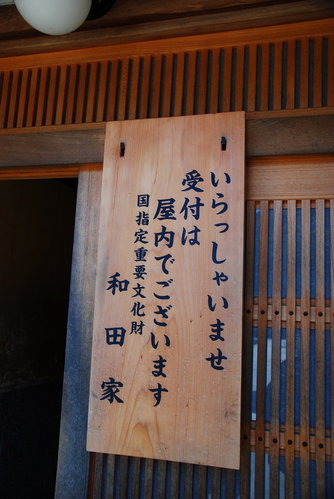 いらっしゃいませ
受付は
屋内でございます
国指定重要文化財
和田家